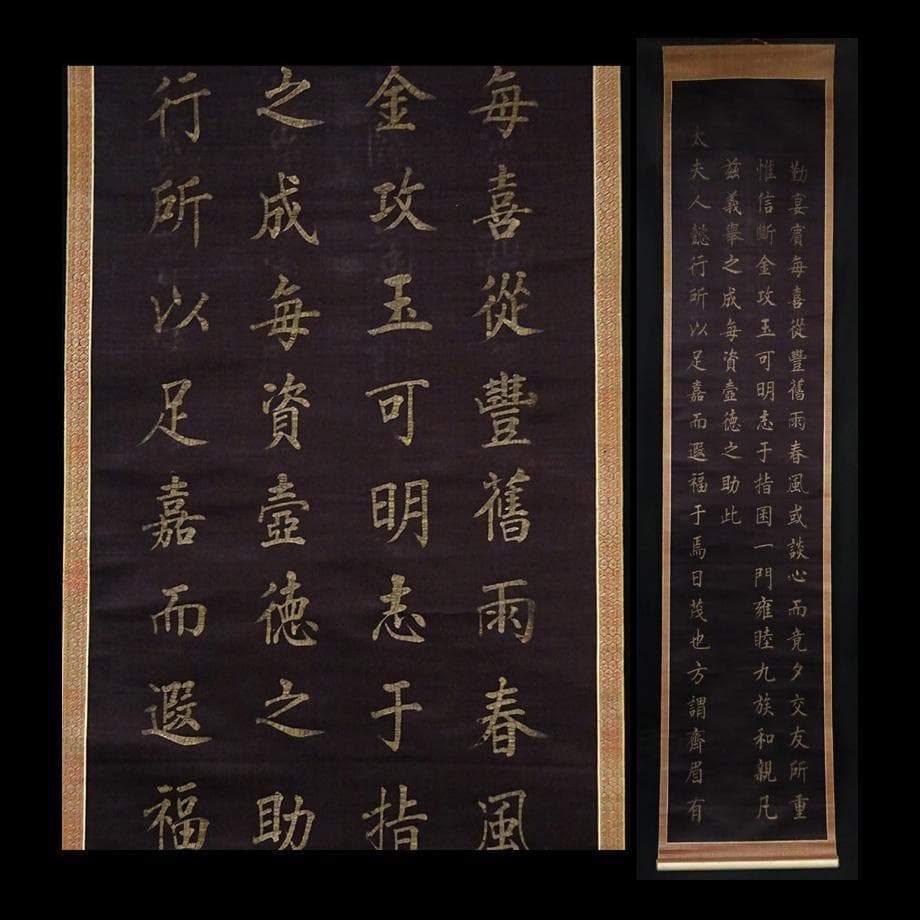 每喜從豐舊雨春風
金攻玉可明志于指
之成每資壼德之助
行所以足嘉而遐福
勤宴賓每喜從豐舊雨春風或談心而竟夕交友所重
惟信斷金攻玉可明志于指囷一門雍睦九族和親凡
茲義舉之成每資壼德之助此
太夫人懿行所以足嘉而遐福于焉日茂也方謂齊眉有